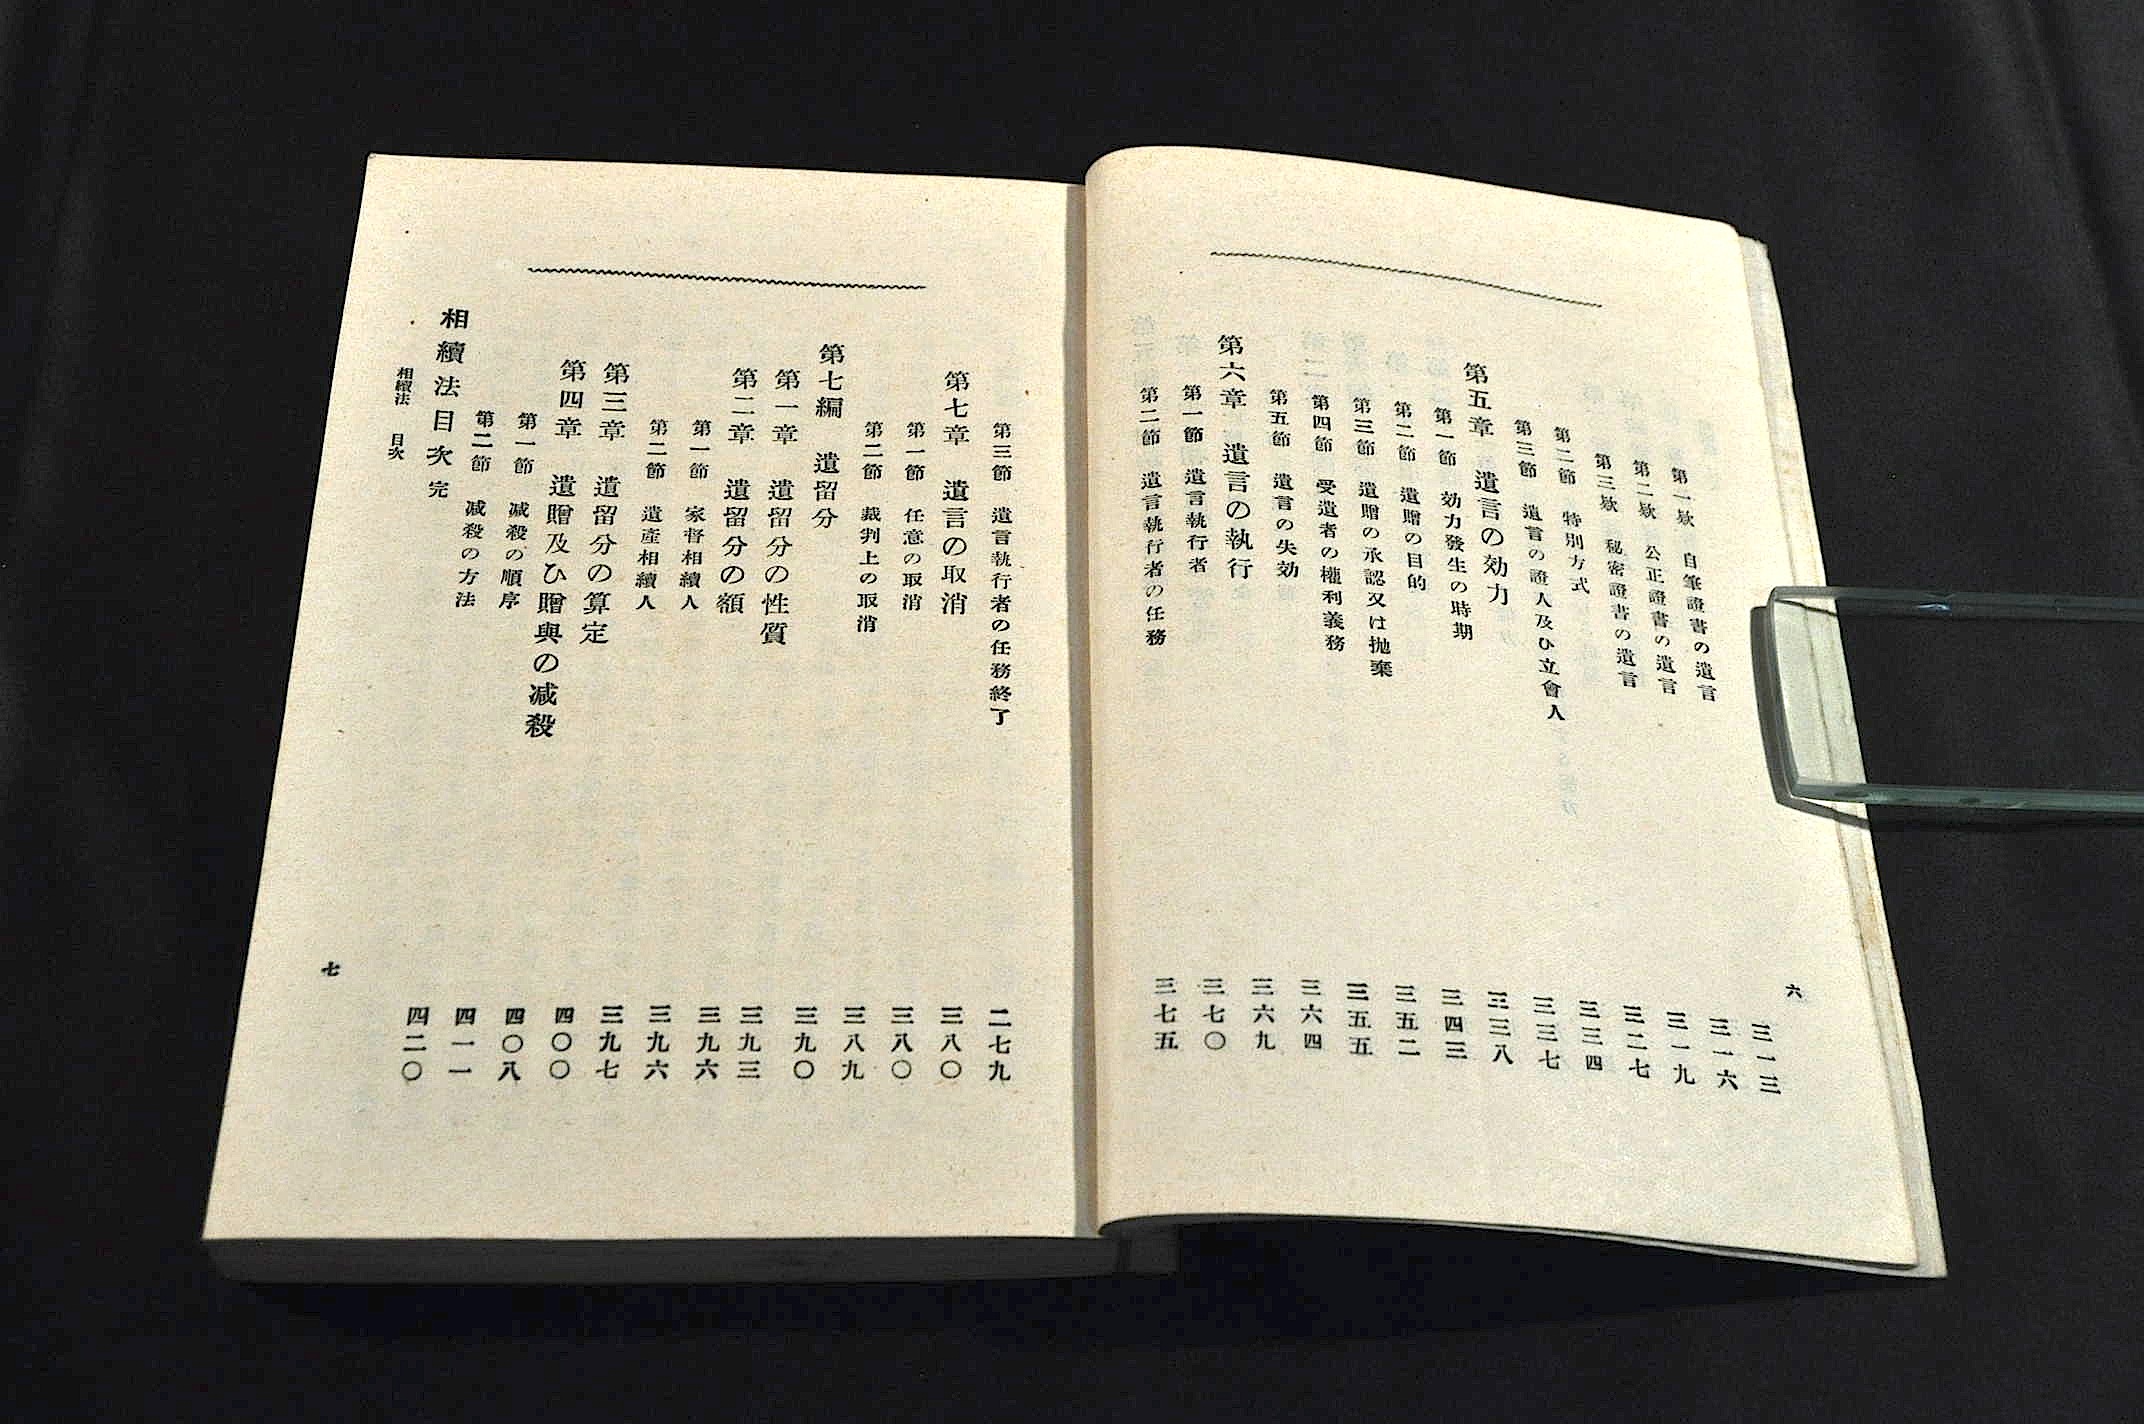 六
第一欵 自筆證書の遺言 三一三
第二欵 公正證書の遺言 三一六
第三欵 秘密證書の遺言 三一九
第二節 特別方式 三二七
第三節 遺言の證人及ひ立會人 三三四
第五章 遺言の効力 三三七
第一節 効力發生の時期 三三八
第二節 遺贈の目的 三四三
第三節 遺贈の承認又は抛棄 三五二
第四節 受遺者の權利義務 三五五
第五節 遺言の失効 三六四
第六章 遺言の執行 三六九
第一節 遺言執行者 三七〇
第二節 遺言執行者の任務 三七五
第三節 遺言執行者の任務終了 二七九
第七章 遺言の取消 三八〇
第一節 任意の取消 三八〇
第二節 裁判上の取消 三八九
第七編 遺留分 三九〇
第一章 遺留分の性質 三九三
第二章 遺留分の額 三九六
第一節 家督相續人 三九六
第二節 遺產相續人 三九七
第三章 遺留分の算定 四〇〇
第四章 遺贈及ひ贈與の减殺 四〇八
第一節 减殺の順序 四一一
第二節 减殺の方法 四二〇
相續法目次 完
相續法 目次
七